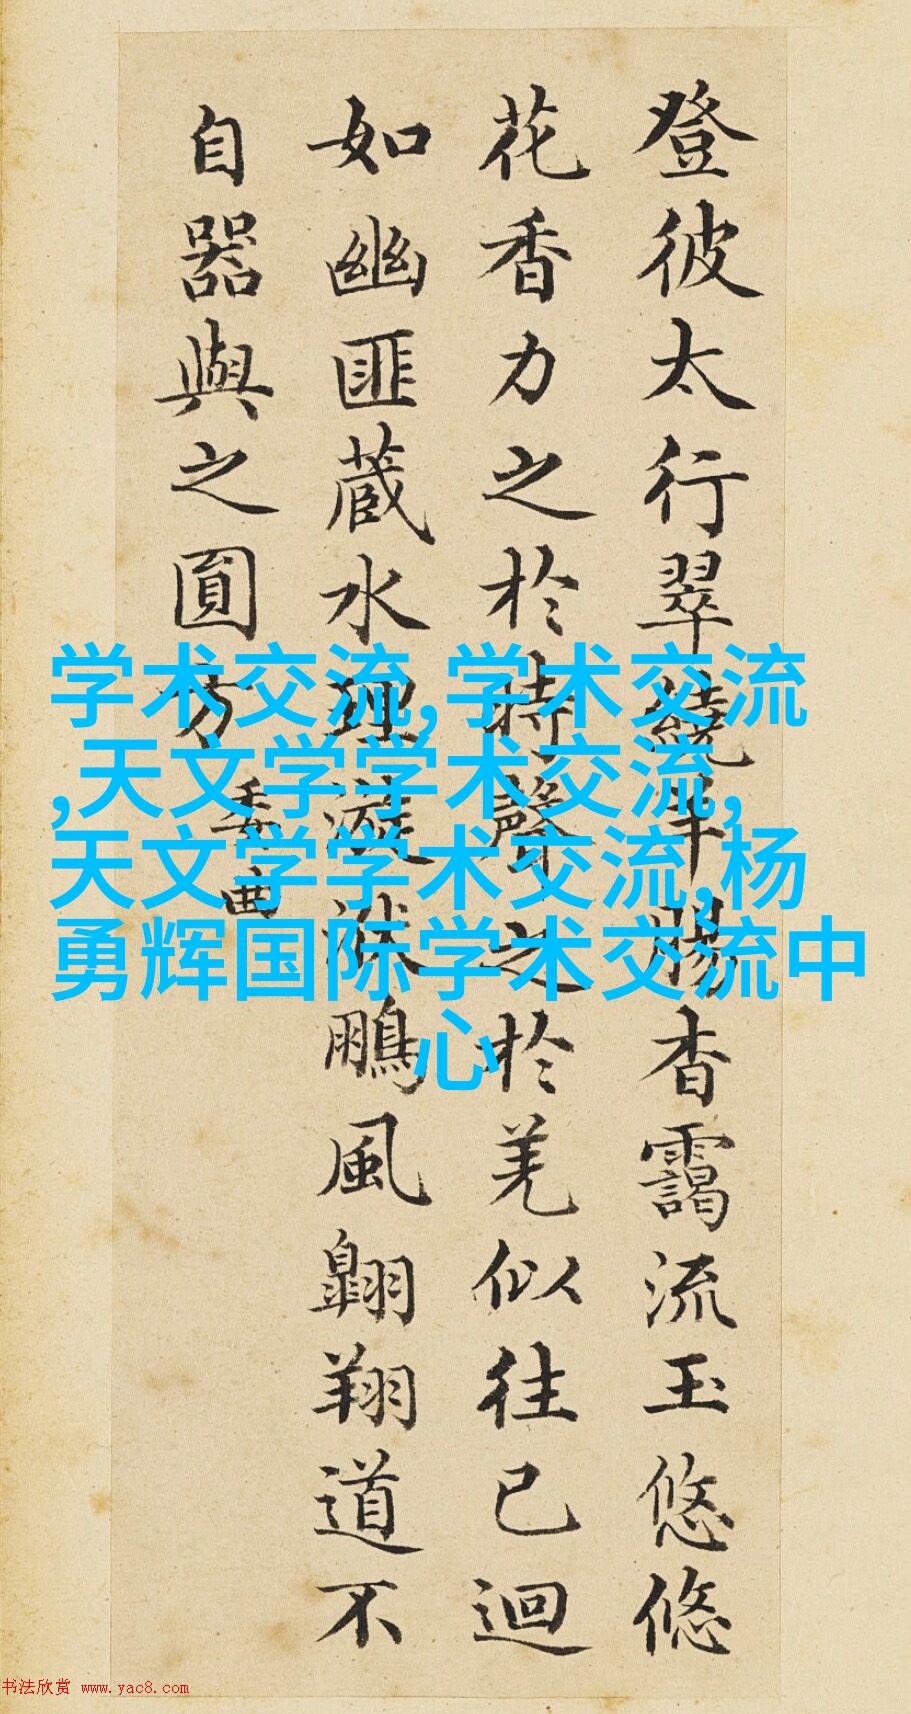 登彼太行翠繞羊腸杳靄流玉悠悠
花香力之於時聲之於羌似往已迴
如幽匪蔵水理漩洑鵬風翶翔道不
自器與之圓方
委曲
学术交流,学术交流
,天文学学术交流,
天文学学术交流,杨
勇辉国际学术交流中
心
书法欣赏 www.yac8.com